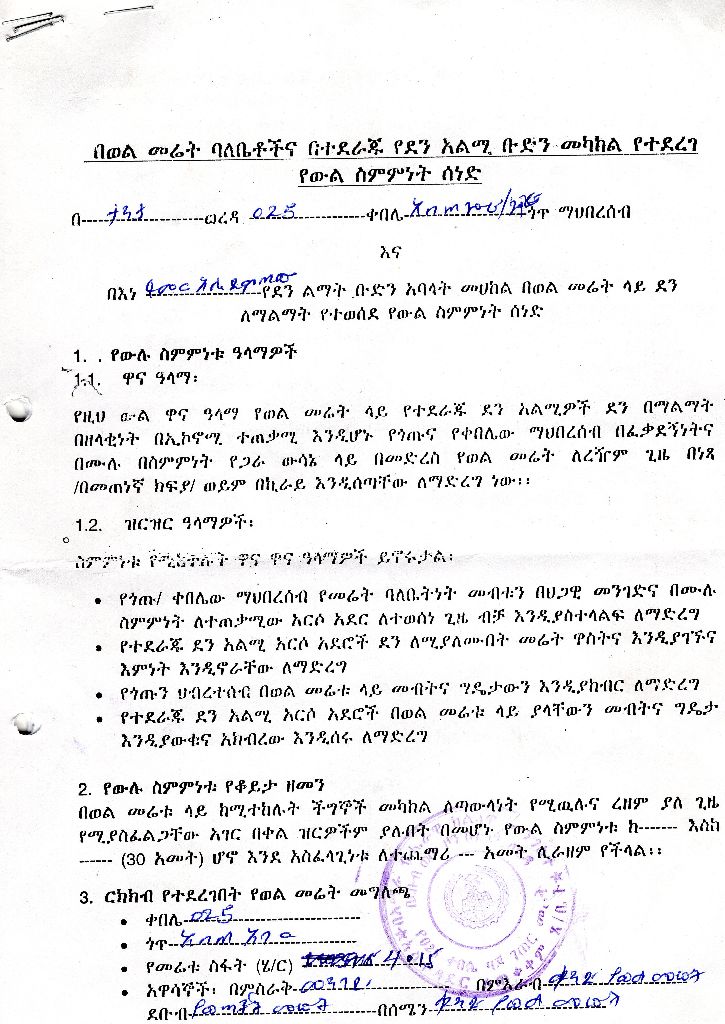 በወል መሬት ባለቤቶችና በተደራጁ የደን አልሚ ቡድን መካከል የተደረገ
የውል ስምምነት ሰነድ
በ---- ---------ወረዳ 025 ----------ቀበሌ ጎጥ ማህበረሰብ
እና
በእነ የደን ልማት ቡድን አባላት መሀከል በወል መሬት ላይ ደን
ለማልማት የተወሰደ የውል ስምምነት ሰነድ
1. . የውሉ ስምምነቱ ዓላማዎች
1.1. ዋና ዓላማ፡
የዚህ ውል ዋና ዓላማ የወል መሬት ላይ የተደራጁ ደን አልሚዎች ደን በማልማት
በዘላቂነት በኢኮኖሚ ተጠቃሚ እንዲሆኑ የጎጡና የቀበሌው ማህበረሰብ በፈቃደኝነትና
በሙሉ በስምምነት የጋራ ውሳኔ ላይ በመድረስ የወል መሬት ለረዥም ጊዜ በነጻ
/በመጠነኛ ክፍያ/ ወይም በኪራይ እንዲሰጣቸው ለማድረግ ነው፡፡
1.2. ዝርዝር ዓላማዎች፡
ስምምነቱ የሚከተሉት ዋና ዋና ዓላማዎች ይኖሩታል፡
• የጎጡ/ ቀበሌው ማህበረሰብ የመሬት ባለቤትነት መብቱን በህጋዊ መንገድና በሙሉ
ስምምነት ለተጠቃሚው አርሶ አደር ለተወሰነ ጊዜ ብቻ እንዲያስተላልፍ ለማድረግ
• የተደራጁ ደን አልሚ አርሶ አደሮች ደን ለሚያለሙበት መሬት ዋስትና እንዲያገኙና
እምነት እንዲኖራቸው ለማድረግ
• የጎጡን ህብረተሰብ በወል መሬቱ ላይ መብትና ግዴታውን እንዲያከብር ለማድረግ
• የተደራጁ ደን አልሚ አርሶ አደሮች በወል መሬቱ ላይ ያላቸውን መብትና ግዴታ
እንዲያውቁና አክብረው እንዲሰሩ ለማድረግ
2. የውሉ ስምምነቱ የቆይታ ዘመን
በወል መሬቱ ላይ ከሚተከሉት ችግኞች መካከል ለጣውላነት የሚዉሉና ረዘም ያለ ጊዜ
የሚያስፈልጋቸው አገር በቀል ዝርዎችም ያሉበት በመሆኑ የውል ስምምነቱ ከ------- እስከ
------ (30 አመት) ሆኖ እንደ አስፈላጊነቱ ለተጨማሪ --- አመት ሊራዘም የችላል፡፡
3. ርክክብ የተደረገበት የወል መሬት መግለጫ
• ቀበሌ 025
• ጎጥ
• የመሬቱ ስፋት (ሄ/ር) 4.15
• አዋሳኞች፡ በምስራቅ በምእራብ የወል መሬት
ደቡብ የወል መሬት በሰሜን የወል መሬት